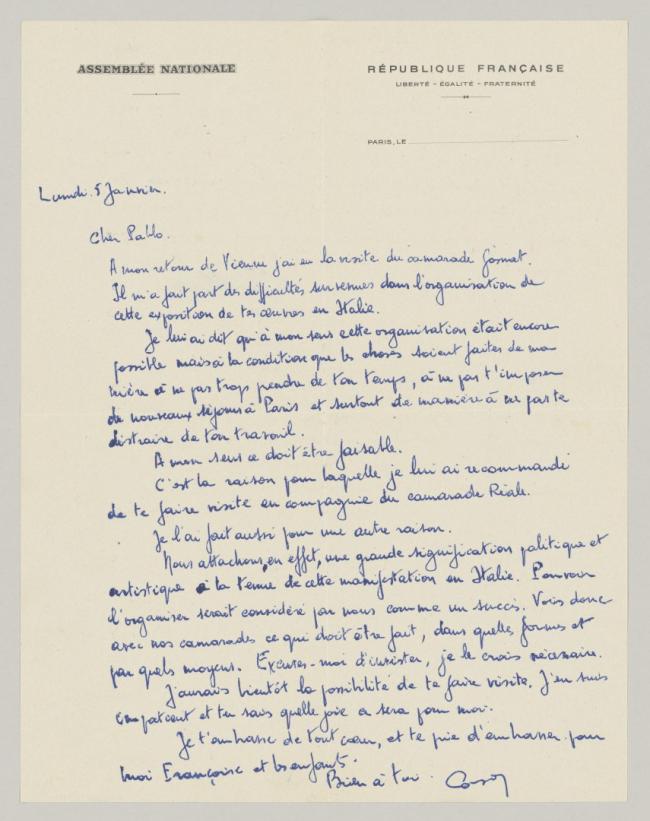 ASSEMBLÉE NATIONALE
RÉPUBLIQUE FRANÇAISE
LIBERTÉ - ÉGALITÉ - FRATERNITÉ
PARIS, LE
Lundi 5 Janvier.
Cher Pablo.
A mon retour de Vienne j'ai eu la visite du camarade
Il m'a fait part des difficultés survenues dans l'organisation de
cette exposition de tes œuvres en Italie.
Je lui ai dit qu'à mon sens cette organisation était encore
possible mais à la condition que les choses soient faites de ma
nière à ne pas trop prendre de ton temps, à ne pas t'imposer
de nouveaux séjours à Paris et surtout de manière à ne pas te
distraire de ton travail.
A mon sens ce doit être faisable.
C'est la raison pour laquelle je lui ai recommandé
de te faire visite en compagnie du camarade Réale.
Je l'ai fait aussi pour une autre raison.
Nous attachons, en effet, une grande signification politique et
artistique à la tenue de cette manifestation en Italie. Pouvoir
l'organiser serait considéré par nous comme un succès. Vois donc
avec nos camarades ce qui doit être fait, dans quelles formes et
par quels moyens. Excuses-moi d'insister, je le crois nécessaire.
J'aurais bientôt la possibilité de te faire visite. J'en suis
impatient et tu sais quelle joie ce sera pour moi.
Je t'embrasse de tout cœur, et te prie d'embrasser pour
moi Françoise et les enfants.
Bien à toi.